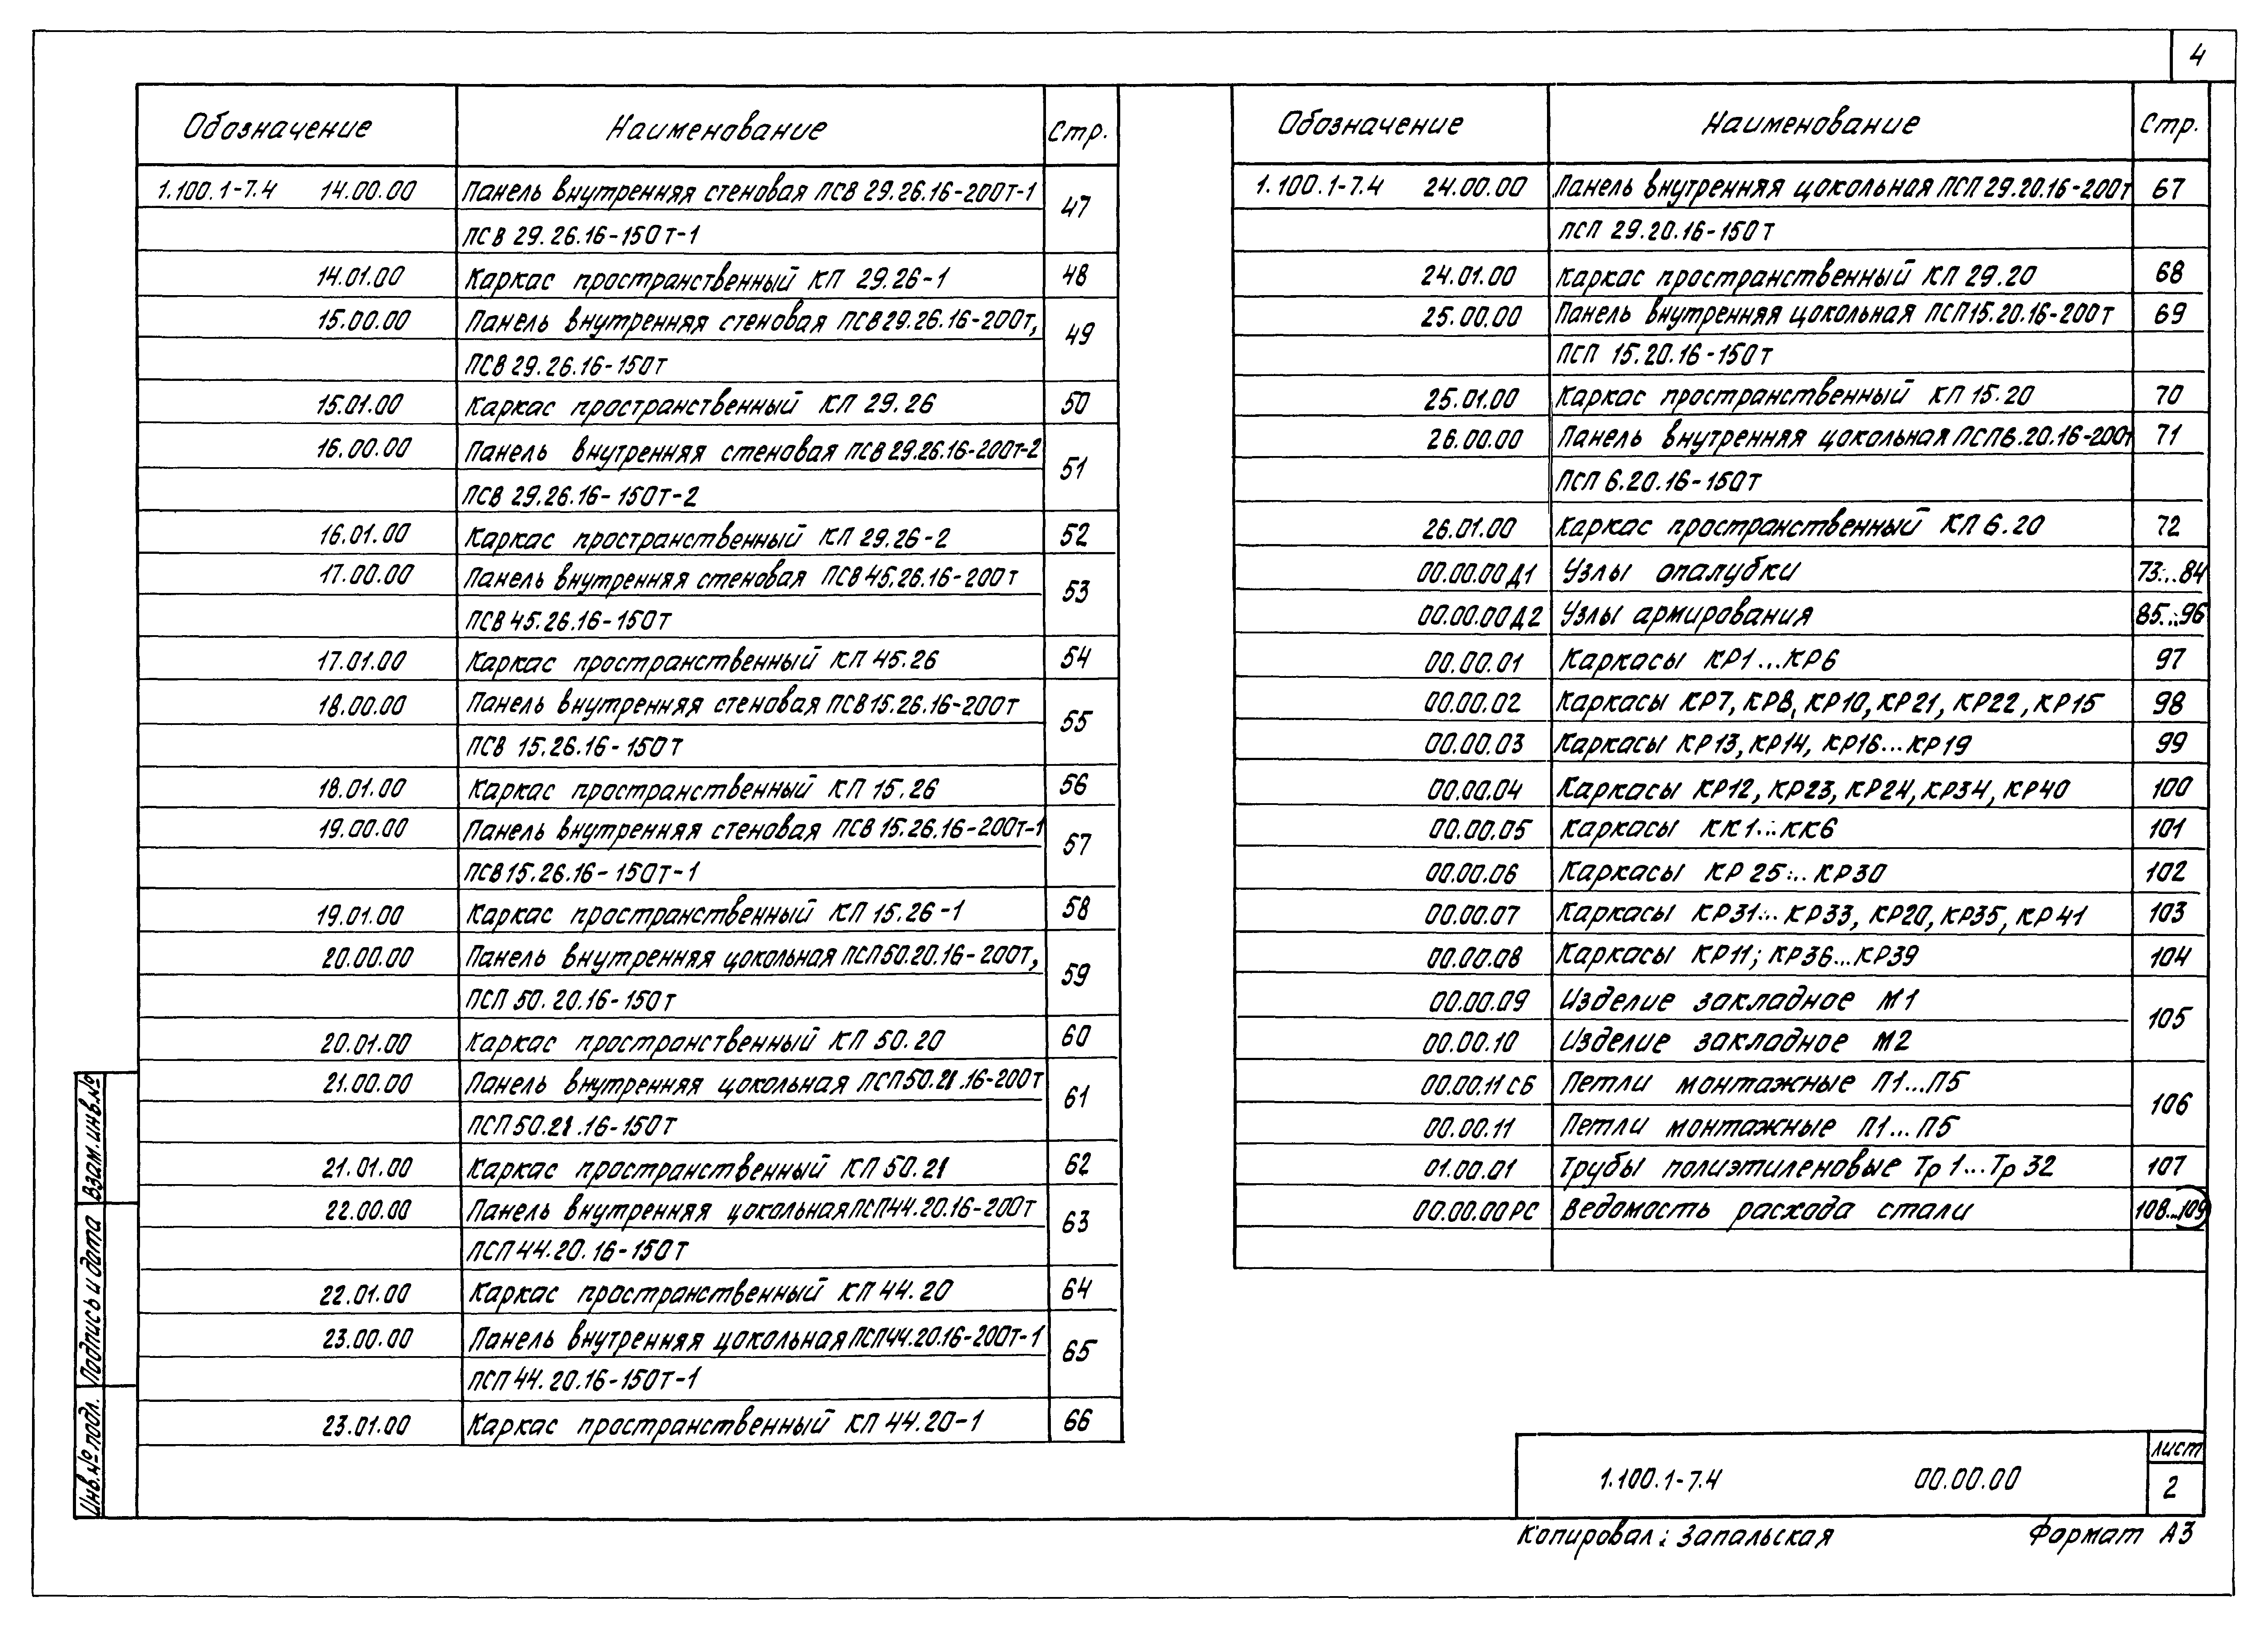 4
Обозначение Наименование Стр.
1.100.1-7.4 14.00.00 Панель внутренняя стеновая ПСВ 29.26.16-200т-1 47
ПСВ 29.26.16-150т-1
14.01.00 Каркас пространственный КП 29.26-1 48
15.00.00 Панель внутренняя стеновая ПСВ 29.26.16-200т, 49
ПСВ 29.26.16-150т
15.01.00 Каркас пространственный КП 29.26 50
16.00.00 Панель внутренняя стеновая ПСВ 29.26.16-200т-2 51
ПСВ 29.26.16-150т-2
16.01.00 Каркас пространственный КП 29.26-2 52
17.00.00 Панель внутренняя стеновая ПСВ 45.26.16-200т 53
ПСВ 45.26.16-150т
17.01.00 Каркас пространственный КП 45.26 54
18.00.00 Панель внутренняя стеновая ПСВ 15.26.16-200т 55
ПСВ 15.26.16-150т
18.01.00 Каркас пространственный КП 15.26 56
19.00.00 Панель внутренняя стеновая ПСВ 15.26.16-200т-1 57
ПСВ 15.26.16-150т-1
19.01.00 Каркас пространственный КП 15.26-1 58
20.00.00 Панель внутренняя цокольная ПСП 50.20.16-200т, 59
ПСП 50.20.16-150т
20.01.00 Каркас пространственный КП 50.20 60
21.00.00 Панель внутренняя цокольная ПСП 50.21.16-200т 61
ПСП 50.21.16-150т
21.01.00 Каркас пространственный КП 50.21 62
22.00.00 Панель внутренняя цокольная ПСП 44.20.16-200т 63
ПСП 44.20.16-150т
22.01.00 Каркас пространственный КП 44.20 64
23.00.00 Панель внутренняя цокольная ПСП 44.20.16-200т-1 65
ПСП 44.20.16-150т-1
23.01.00 Каркас пространственный КП 44.20-1 66
Обозначение Наименование Стр.
1.100.1-7.4 24.00.00 Панель внутренняя цокольная ПСП 29.20.16-200т 67
ПСП 29.20.16-150т
24.01.00 Каркас пространственный КП 29.20 68
25.00.00 Панель внутренняя цокольная ПСП 15.20.16-200т 69
ПСП 15.20.16-150т
25.01.00 Каркас пространственный КП 15.20 70
26.00.00 Панель внутренняя цокольная ПСП 6.20.16-200т 71
ПСП 6.20.16-150т
26.01.00 Каркас пространственный КП 6.20 72
00.00.00 Д1 Узлы опалубки 73...84
00.00.00 Д2 Узлы армирования 85...96
00.00.01 Каркасы КР1...КР6 97
00.00.02 Каркасы КР7, КР8, КР10, КР21, КР22, КР15 98
00.00.03 Каркасы КР13, КР14, КР16...КР19 99
00.00.04 Каркасы КР12, КР23, КР24, КР34, КР40 100
00.00.05 Каркасы КК1...КК6 101
00.00.06 Каркасы КР 25...КР30 102
00.00.07 Каркасы КР31...КР33, КР20, КР35, КР41 103
00.00.08 Каркасы КР11; КР36...КР39 104
00.00.09 Изделие закладное М1 105
00.00.10 Изделие закладное М2
00.00.11 СБ Петли монтажные П1...П5 106
00.00.11 Петли монтажные П1...П5
01.00.01 Трубы полиэтиленовые Тр 1...Тр 32 107
00.00.00 РС Ведомость расхода стали 108...109
Взам. инв.№
Подпись и дата
Инв.№ подл.
1.100.1-7.4 00.00.00
лист
2
Копировал: Запальская Формат А3